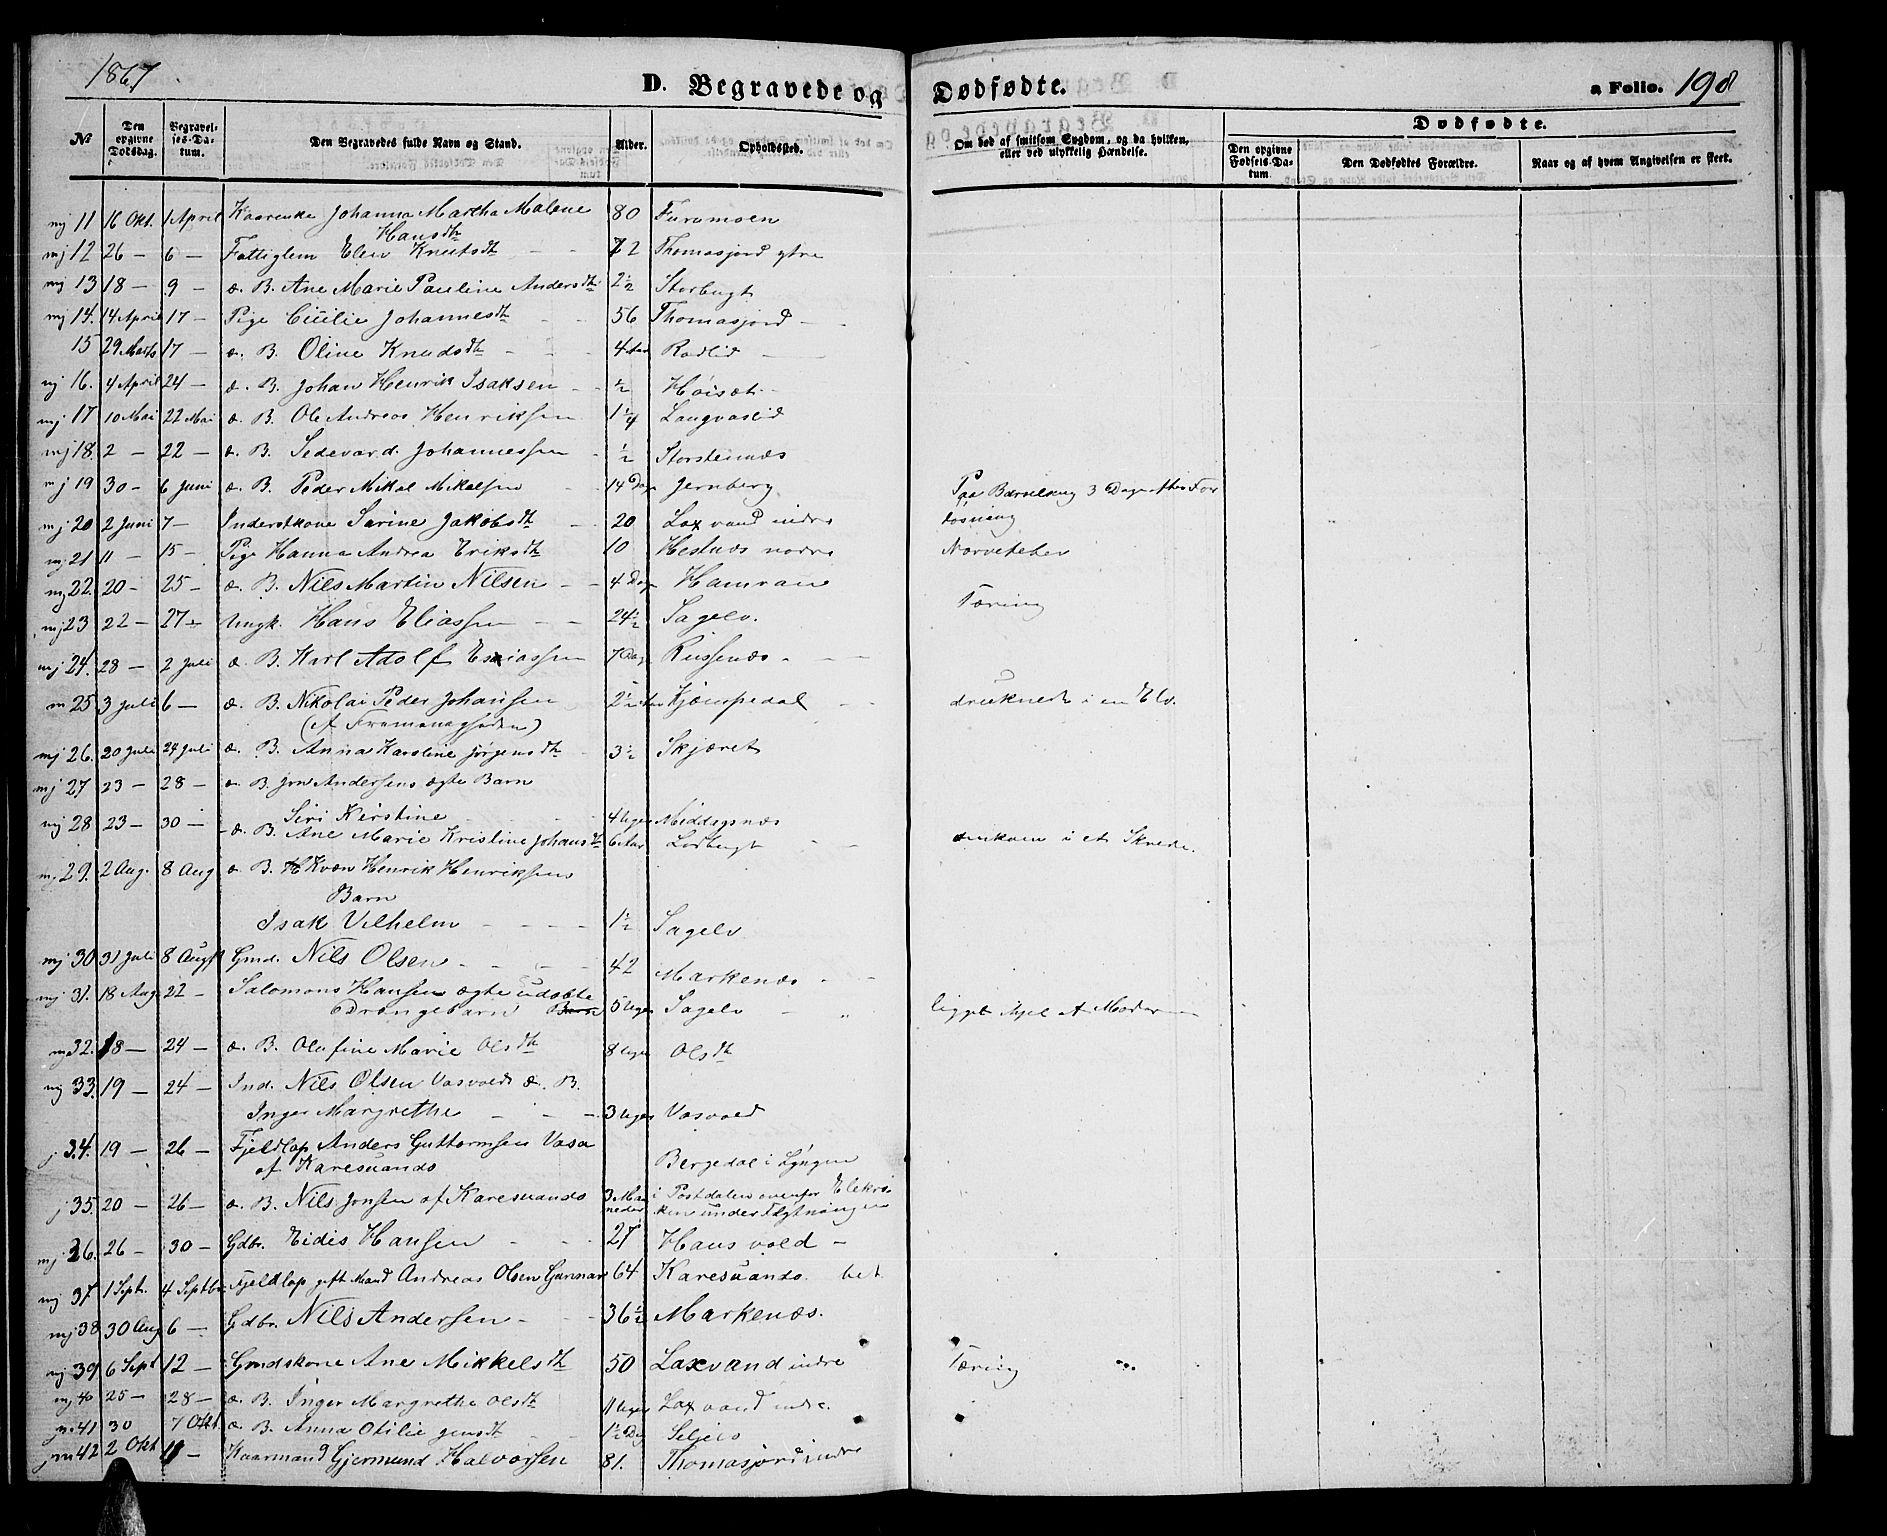 1867
D. Begravede og Dødfødte.
a Folio. 198
No
Den opgivne Dødsdag.
Begravelses-Datum.
Den Begravedes fulde Navn og Stand.
Alder.
Opholdssted.
Om død af smitsom Sygdom, og da hvilken, eller ved ulykkelig Hændelse.
Dødfødte.
Den opgivne Fødsels-Datum.
Den Dødfødtes Forældre.
Naar og af hvem Angivelsen er skeet.
11 16 Okt. 1 April Kaarenke Johanna Martha Malene Hansdtr 80 Furumoen
12 26 — 6 — Fattiglem Elen Knutsdtr 72 Thomasjord ytre
13 18 — 9 — æ. B. Ane Marie Pauline Andersdtr 2½ Storbugt
14. 14 April 17 — Pige Cicilie Johannesdtr 56 Thomasjord —
15 29 Marts 17 — æ. B. Oline Knudsdtr 4 Rødlid
16. 4 April 24 — æ. B. Johan Henrik Isaksen ½ Høisæt
17 10 Mai 22 Mai æ. B. Ole Andreas Henriksen 1¼ Langvaslid
18. 2 — 22 — æ. B. Sedevard Johannessen ½ Storstennæs
19 30 — 6 Juni æ. B. Peder Mikal Mikalsen 14 Dage Jernberg
20 2 Juni 7 — Inderstkone Sarine Jakobsdtr 20 Laxvand indre Paa Barselseng 3 Dage efter Forløsning
21 11 — 15 — Pige Hanna Andrea Eriksdtr 10 Hestnæs nordre Nervefeber
22. 20 — 25 — æ. B. Nils Martin Nilsen 4 Dage Hamran
23 22 — 27 — Ungk. Hans Eliassen 24½ Sagelv. Tæring
24. 28 — 2 Juli æ. B. Karl Adolf Esaiassen 7 Dage Russenæs
25 3 Juli 6 — æ. B. Nikolai Peder Johansen 2½ Aar Kjæuspedal druknede i en Elv.
26. 20 Juli 24 Juli æ. B. Anna Karoline Jørgensdtr 3½ Skjæret
27 23 — 28 — æ. B. Jon Andersens ægte Barn
Siri Kirstine 4 Uger Middagsnæs
28 23 — 30 — æ. B. Ane Marie Kristine Johansdtr 6 Aar Lodbugt omkom i et Skrede.
29. 2 Aug. 8 Aug æ. B. Kvæn Henrik Henriksens
Barn
Isak Vilhelm 1½ Sagelv
30 31 Juli 8 August Gmd. Nils Olsen 42 Markenæs
31. 18 Aug 22 — Salomons Hansen ægte udøbte
Drengebarn 5 Uger Sagelv ligget ihjel af Moderen
32. 18 — 24 — æ. B. Olufine Marie Olsdtr 8 Uger Olsdtr
33. 19 — 24 — Ind. Nils Olsen Vasvolds æ. B.
Inger Margrethe 3 Uger Vasvold
34. 19 — 26 — Fjeldlap Anders Guttormsen Vasa
af Karesuando Bergedal i Lyngen
35. 20 — 26 — æ. B. Nils Jonsen af Karesuando 3 Maaneder i Postdalen ovenfor
under Flytningen
36. 26 — 30 — Gdbr. Eidis Hansen 27 Hansvold —
37 1 Sept. 4 Septbr. Fjeldlap gift Mand Andreas Olsen Gunnar 64 Karesuando
38 30 Aug 6 — Gdbr. Nils Andersen 36½ Markenæs.
39 6 Sept 12 — Gmdskone Ane Mikkelsdtr 50 Laxvand indre Tæring
40 25 — 28 — æ. B. Inger Margrethe Olsdtr 11 Uger Laxvand indre.
41 30 7 Okt æ. B. Anna Otilie Jensdtr 1½ Dag Seljeis
42 2 Okt 11 — Kaarmand Gjermund Halvorsen 81. Thomasjord indre